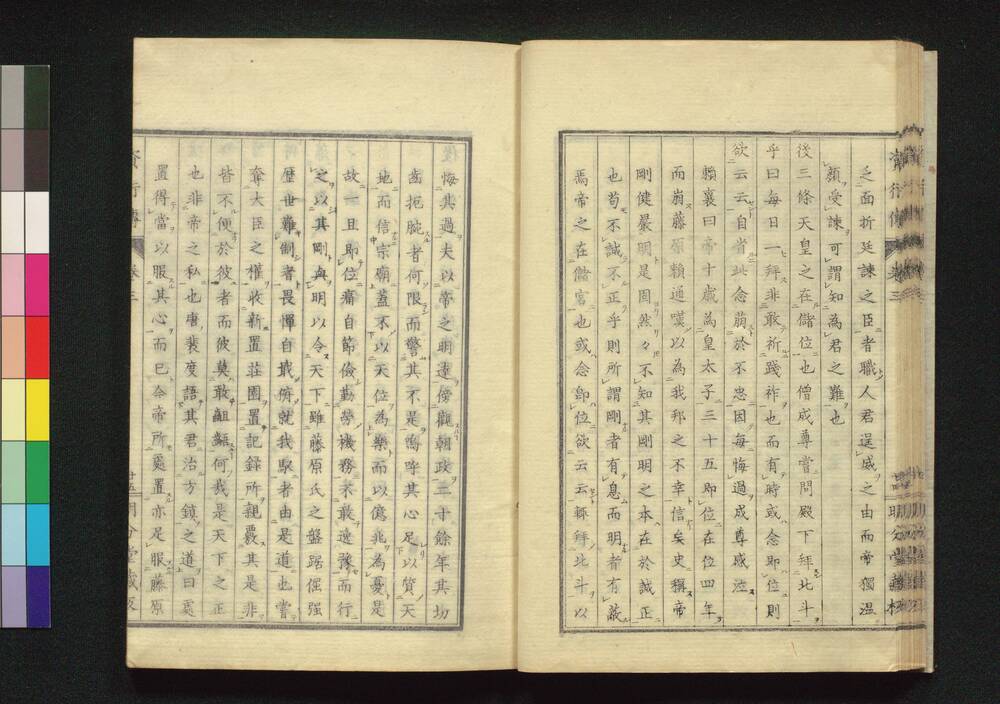 之面折廷諫之臣者職人君逞威之由而帝獨溫
顏受諫可謂知為君之難也
後三條天皇之在儲位也僧成尊嘗問殿下拜北斗
乎曰每日一拜非敢祈踐祚也而有時或念即位則
欲云云自省此念萠於不忠因每悔過成尊感泣
賴襄曰帝十歲為皇太子三十五即位在位四年
而崩藤原賴通嘆以為我邦之不幸信矣史稱帝
剛健嚴明是固然々不知其剛明之本在於誠正
也苟不誠不正乎則所謂剛者有息而明者有蔽
焉帝之在儲宮也或念即位欲云云輒拜北斗以
悔其過夫以帝之明達傍觀朝政二十餘年其切
齒扼腕者何限而警其不是嗚呼其心足以質天
地而信宗廟蓋不以天位為樂而以億兆為憂是
故一旦即位痛自節儉勤勞機務不敢逸豫而行
之以其剛與明以令天下雖藤原氏之盤踞倔强
歷世難制者畏憚自戢俯就我馭者由是道也嘗
奪大臣之權收新置莊園置記錄所親覈其是非
皆不便於彼者而彼莫敢齟齬何我是天下之正
也非帝之私也唐裴度語其君治方鎮之道曰處
置得當以服其心而已今帝所處置亦足服藤原